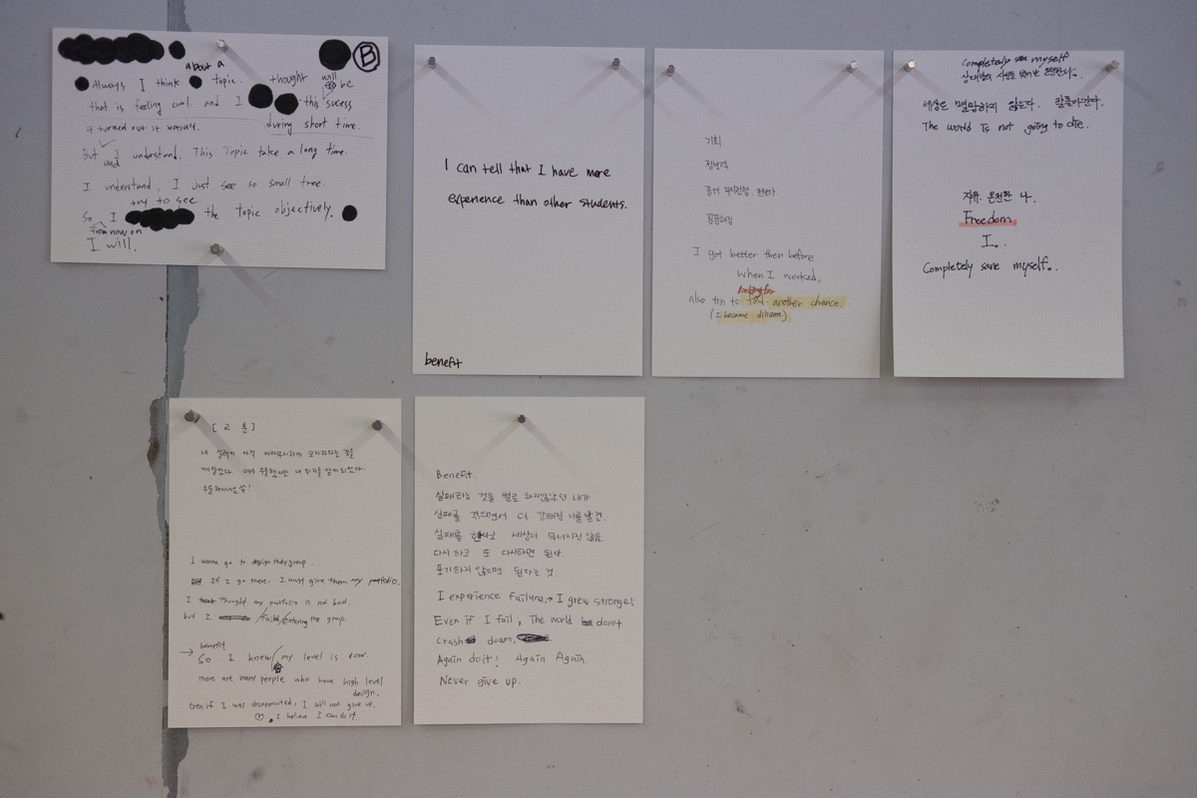 B
about a
Always I think topic. thought will be
that is feeling cool. and I this sucess
it turned out it wasn't. during short time.
But and I understand. This Topic take a long time.
I understand, I just see so small tree.
try to see
So I the topic objectively.
From now on
I will.
I can tell that I have more
experience than other students.
benefit
기회.
I got better then before
When I worked,
looking for
also try to find another chance.
(I became)
Completely save myself
세상은 멸망하지 않는다.
The world is not going to die.
자유. 온전한 나.
Freedom
I.
Completely save myself.
[교훈]
내 실력이 아직 어마무시하게 모자라다는 것을
깨달았다. 아주 우울했지만 내 위치를 알게되었다.
I wanna go to design group.
If I go there, I must give them my portfolio.
I thought my portfolio is not bad.
but I failed entering the group.
→ benefit
So I knew my level is low.
There are many people who have high level
design.
Even if I was disappointed, I will not give up.
I believe I can do it.
Benefit.
실패라는 것을 별로 하지않았던 내가
실패를 겪으면서 더 강해진 나를 발견.
실패를 한다고 세상이 무너지진 않음.
다시 하고 또 다시하면 된다.
포기하지 않으면 된다는 것.
I experience failure → I grew stronger!
Even if I fail, The world don't
crash down.
Again do it! Again Again
Never give up.